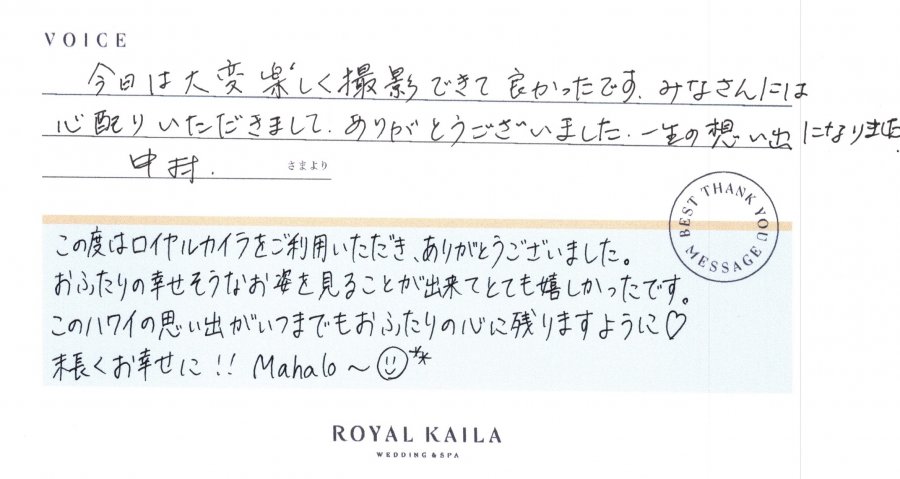 VOICE
今日は大変楽しく撮影できて良かったです。みなさんには
心配りいただきまして、ありがとうございました。一生の想い出になりました。
中村. さまより
BEST THANK YOU MESSAGE
この度はロイヤルカイラをご利用いただき、ありがとうございました。
おふたりの幸せそうなお姿を見ることが出来てとても嬉しかったです。
このハワイの思い出がいつまでもおふたりの心に残りますように♡
末長くお幸せに!! Mahalo～
ROYAL KAILA
WEDDING & SPA